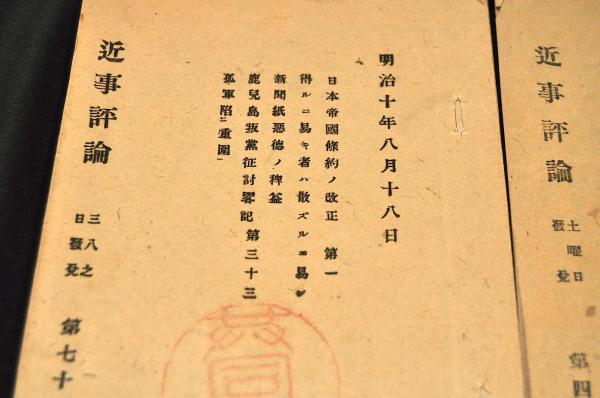 明治十年八月十八日
日本帝國條約ノ改正 第一
得ルニ易キ者ハ散ズルヿ易シ
新聞紙惡德ノ稗益
鹿兒島叛黨征討畧記 第三十三
孤軍陷ニ重圍一
近事評論
三八之
日發兌
第七十
近事評論
土曜日
發兌
第四
共同